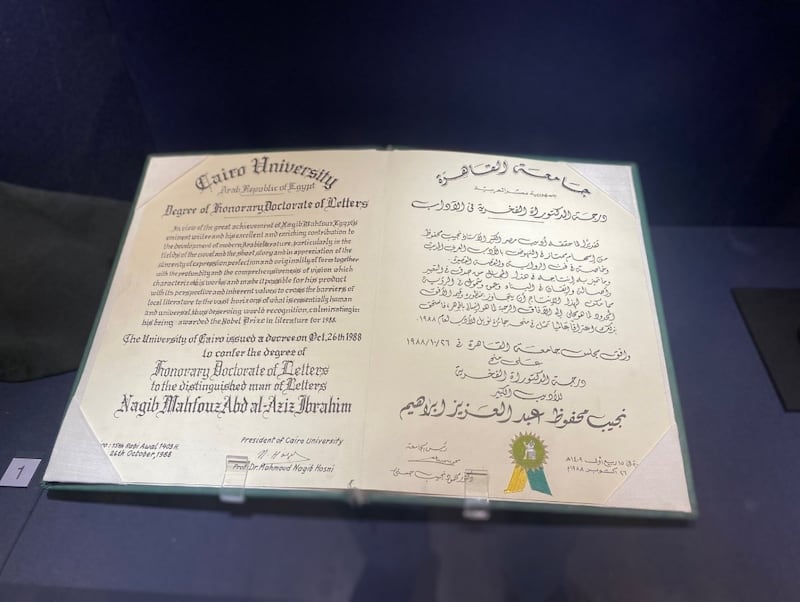 Cairo University
Arab Republic of Egypt
Degree of Honorary Doctorate of Letters
In view of the great achievement of Nagib Mahfouz, Egypt's
eminent writer and his excellent and enriching contribution to
the development of modern Arabic literature, particularly in the
fields of the novel and the short story, and in appreciation of the
sincerity of expression, perfection and originality of form together
with the profundity and the comprehensiveness of vision which
characterize his works and made it possible for his product
with its perspective and inherent values to cross the barriers of
local literature to the vast horizons of what is essentially human
and universal, thus deserving world recognition, culminating in
his being awarded the Nobel Prize in literature for 1988.
The University of Cairo issued a decree on Oct, 26th 1988
to confer the degree of
Honorary Doctorate of Letters
to the distinguished man of Letters
Nagib Mahfouz Abd al-Aziz Ibrahim
15th Rabi Awal 1409 H
26th October, 1988
President of Cairo University
Prof. Dr. Mahmoud Nagib Hosni
جامعة القاهرة
جمهورية مصر العربية
درجة الدكتوراة الفخرية فى الآداب
تقديرًا لما حققه أديب مصر الكبير الأستاذ نجيب محفوظ
من إسهام ممتاز فى النهوض بالأدب العربى الحديث
وخاصة فى فن الرواية والقصة القصيرة
عام ١٩٨٨
وافق مجلس جامعة القاهرة فى ١٩٨٨/١٠/٢٦
على منح
درجة الدكتوراة الفخرية
للأديب الكبير
نجيب محفوظ عبد العزيز ابراهيم
رئيس الجامعة
١٥ ربيع أول ١٤٠٩هـ
٢٦ أكتوبر ١٩٨٨م
1